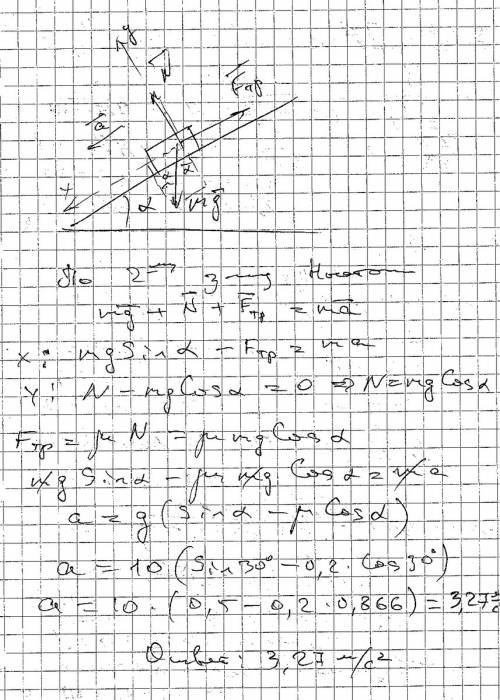 y
N
Fтр
a
x
α
α
α
mg
По 2му з-ну Ньютона
mg + N + Fтр = ma
x: mgSinα − Fтр = ma
y: N − mgCosα = 0 ⇒ N = mgCosα
Fтр = μN = μmgCosα
mg Sinα − μmg Cosα = ma
a = g(Sinα − μCosα)
a = 10(Sin30° − 0,2 · Cos30°)
a = 10 · (0,5 − 0,2 · 0,866) = 3,27
Ответ: 3,27 м/с²